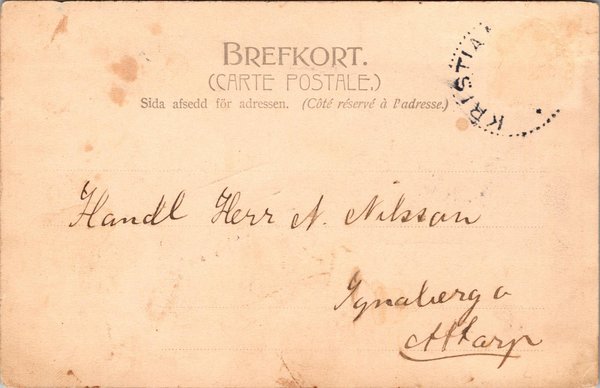 BREFKORT.
(CARTE POSTALE.)
Sida afsedd för adressen. (Côté réservé à l'adresse.)
KRISTIA
Handl Herr N. Nilsson
Ignaberga
Attarp